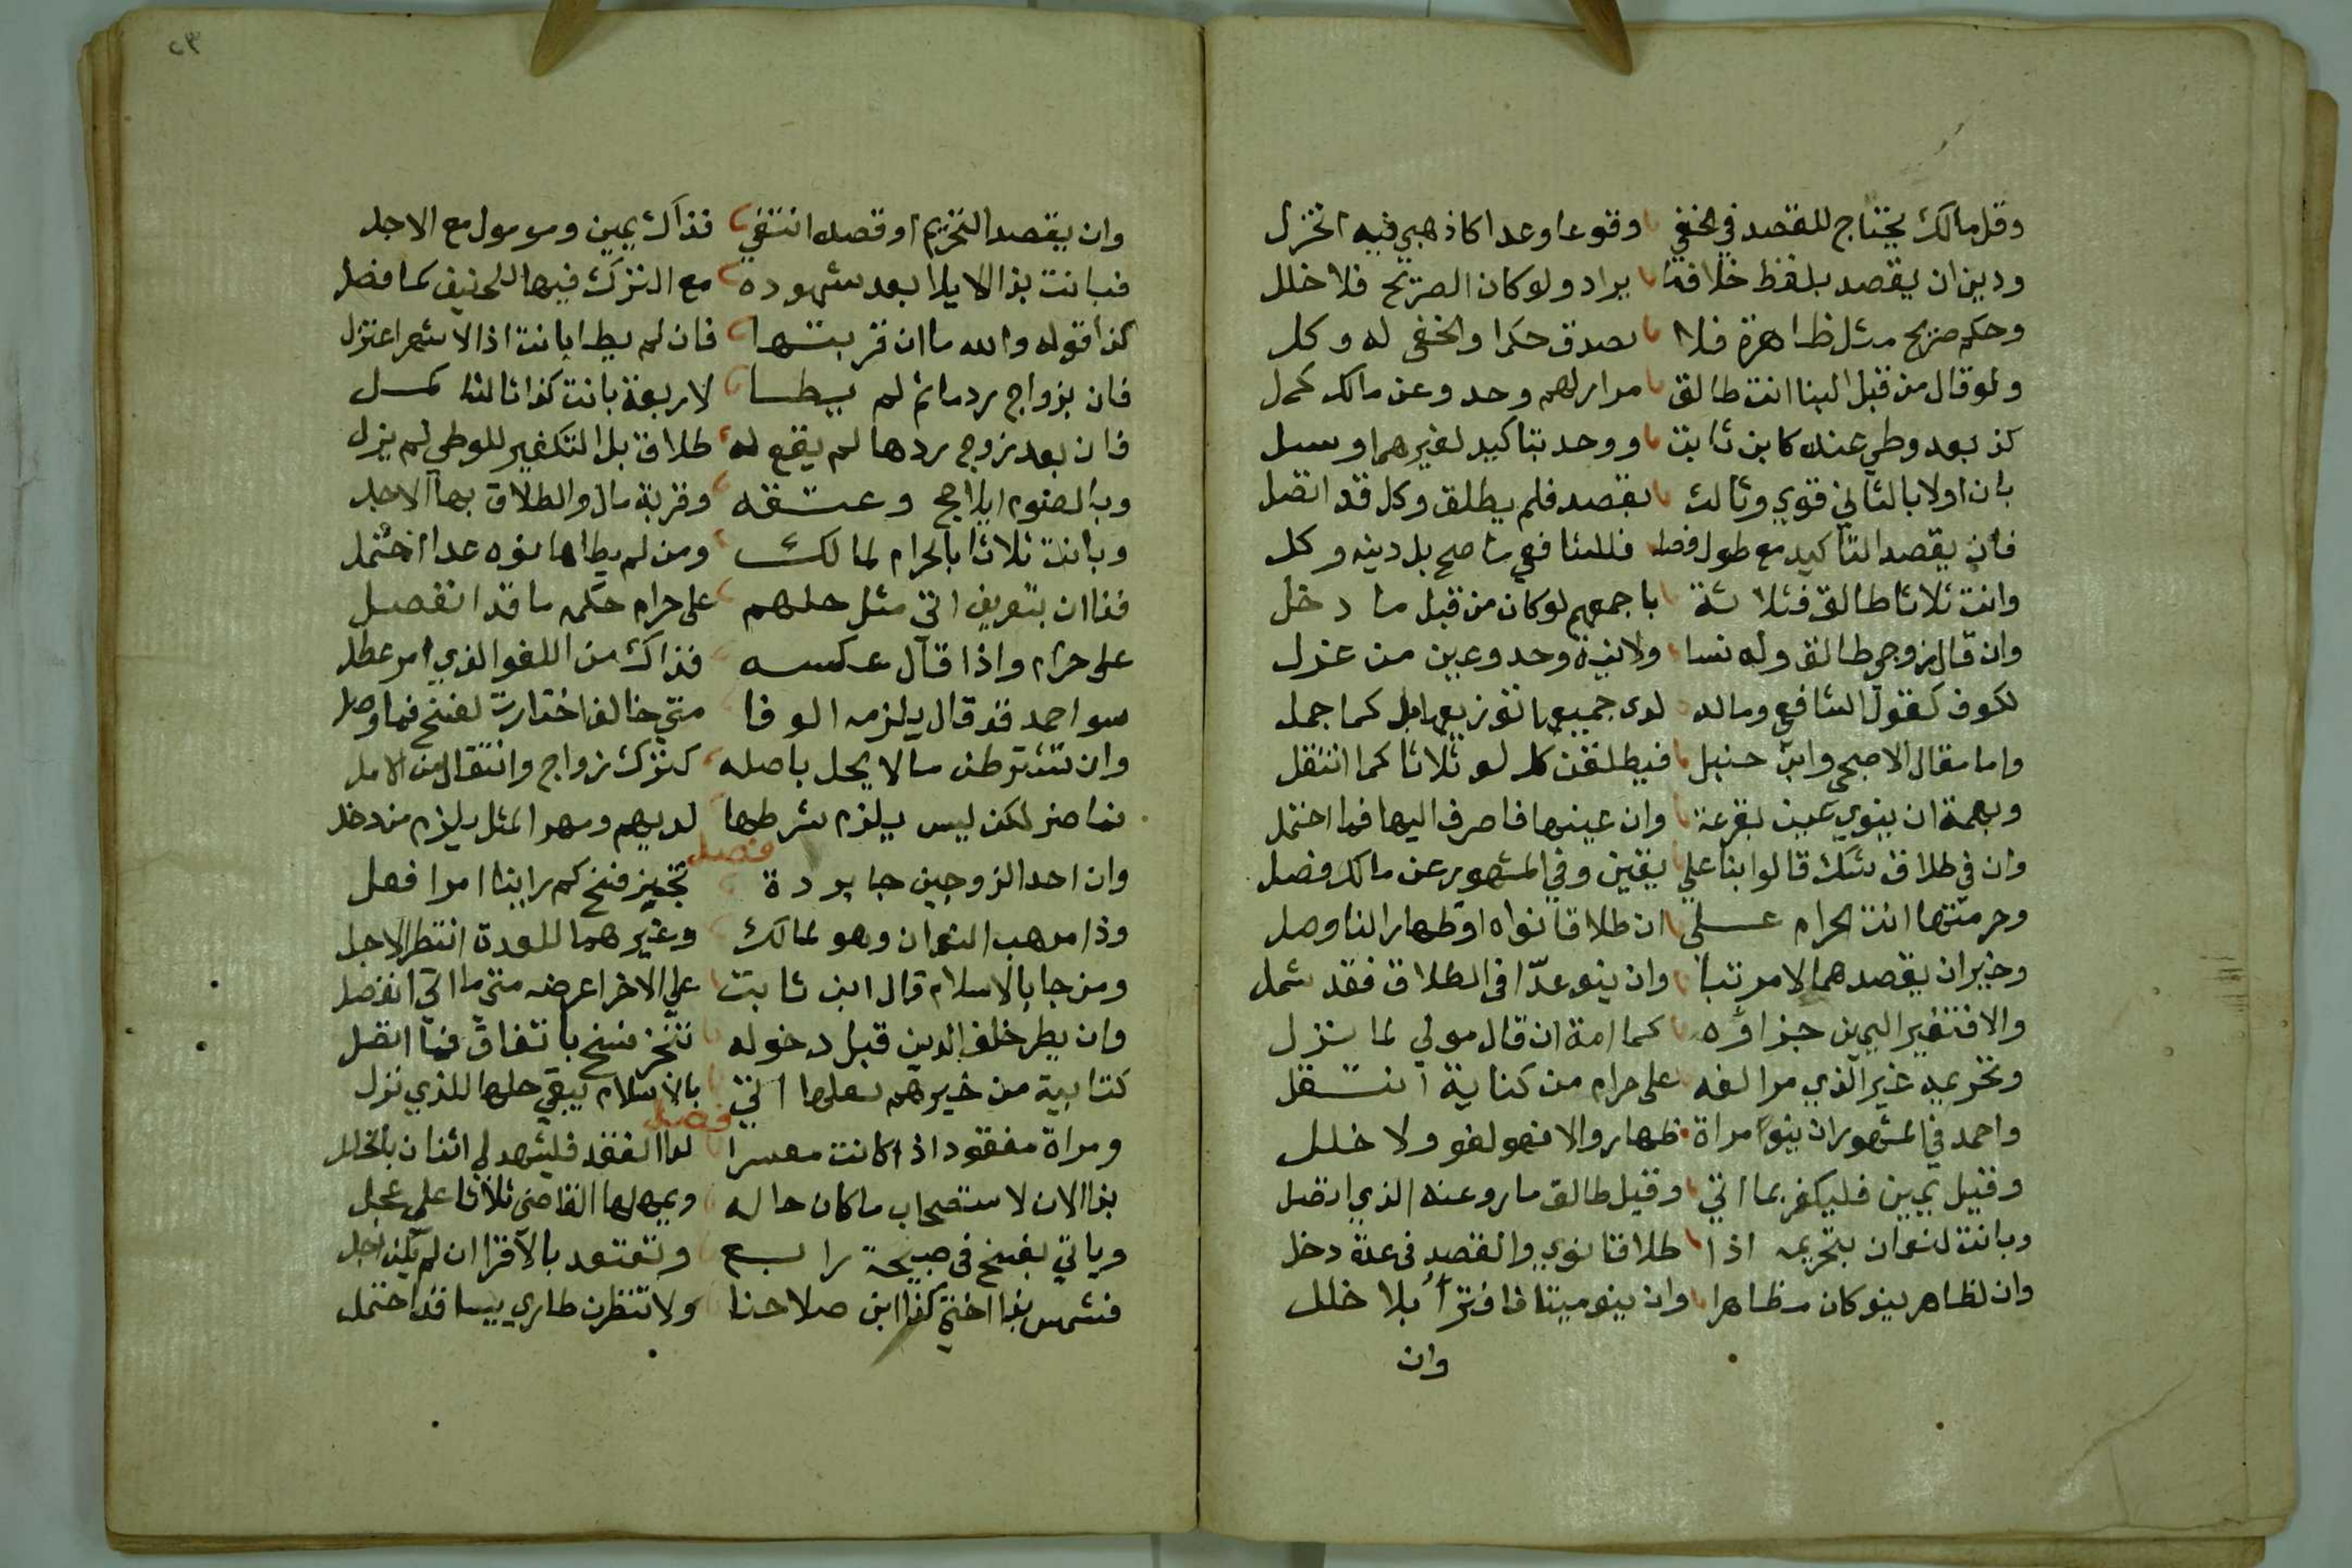 وقل مالك يحتاج للقصد في الخفي وقوعا وعدا كاذهبي فيه اختزل
ودين ان يقصد بلفظ خلافه يراد ولو كان الصريح فلا خلل
وحكم صريح مثل ظاهرة فلا يصدق حكما والخفي له وكل
ولو قال من قبل البنا انت طالق مرارا لهم وحد وعن مالك كمل
كذ بعد وطي عنده كابن ثابت ووحد بتاكيد لغيرهما وسل
بان اولا بالثاني قوي وثالث بقصد فلم يطلق وكل قد اتصل
فان يقصد التاكيد مع طول فصله فللشافعي ما صح بل دينه وكل
وانت ثلاثا طالق فثلاثة باجمعهم لو كان من قبل ما دخل
وان قال زوجي طالق وله نسا ولانية وحد وعين من عزل
لكوف كقول الشافعي وماله لدى جميعها توزيعها بل كما جمل
واما مقال الاصبحي وابن حنبل فيطلقن كل لو ثلاثا كما انتقل
وبهمة ان ينوي عين بقرعة وان عينها فاصرف اليها فما احتمل
وان في طلاق شك قالوا بنا علي يقين وفي المشهور عن مالك فصل
وحرمتها انت الحرام علي ان طلاقا نواه او ظهارا لنا وصل
وخير ان يقصدهما لا مرتبا وان ينو عدّا في الطلاق فقد شمل
والا فتغير اليمين جزاؤه كما امة ان قال مولي لما نزل
وتحريمه غير الذي مر الفه على حرام من كناية انتقل
واحمد في المشهور ان ينو امراة ظهار والا فهو لغو ولا خلل
وقيل يمين فليكفر بما اتي وقيل طالق ما روعنه الذي اتصل
وبانت لنعمان بتحريمه اذا طلاقا نوي والقصد في عدة دخل
وان لظاهر ينو كان مظاهرا وان ينو ميتا فافترأ بلا خلل
وان
٢٣
وان يقصد التحريم او قصده انتفي فذاك يمين وهو مول مع الاجل
فبانت بذا الايلا بعد شهوده مع الترك فيها للحنيف كما فصل
كذا قوله والله ما ان قربتها فان لم يطا بانت اذا الاشهر اعتزل
فان بزواج رد ما ثم لم يطا لاربعة بانت كذا ثالثا كمل
فان بعد زوج ردها لم يقع له طلاق بل التكفير للوطي لم يزل
وبالصوم ايلا حج وعتقه وقربة مال والطلاق بها الاجل
وبانت ثلاثا بالحرام لمالك ومن لم يطاها نوه عدا احتمل
فذا ان بتعريف اتي مثل حلهم على حرام حكمه ما قد انفصل
على حرام واذا قال عكسه فذاك من اللغو الذي امر عطل
سوا احمد قد قال يلزمه الوفا متي خالفا اختارت لفسخ فما وصل
وان تشترطن مالا يحل باصله كترك زواج وانتقال من الامل
فما ضر لكن ليس يلزم شرطها لديهم ومهر المثل يلزم من دخل
فصل
وان احد الزوجين جا بردة تنجيز فسخ كم راينا امرا فعل
وذا مذهب النعمان وهو لمالك وغيرهما للعدة انتظر الاجل
ومن جا بالاسلام قال ابن ثابت علي الاخر اعرضه متي ما اتي انفصل
وان يطر خلف الدين قبل دخوله تنجز فسخ باتفاق فما اتصل
كتابية من غيرهم بعلها اتي بالاسلام يبقي حلها للذي نزل
فصل
ومراة مفقود اذا كانت معسرا لدا الفقد فليشهد لي اثنان بالخلل
بذا الان لاستصحاب ما كان حاله ويمهلها القاضي ثلاثا على عجل
وياتي بفسخ في صبيحة رابع وتعتد بالاقرا ان لم يكن اجل
فشمس بذا افتي كذا ابن صلاحنا ولا تنظرن طاري بيسا قد احتمل